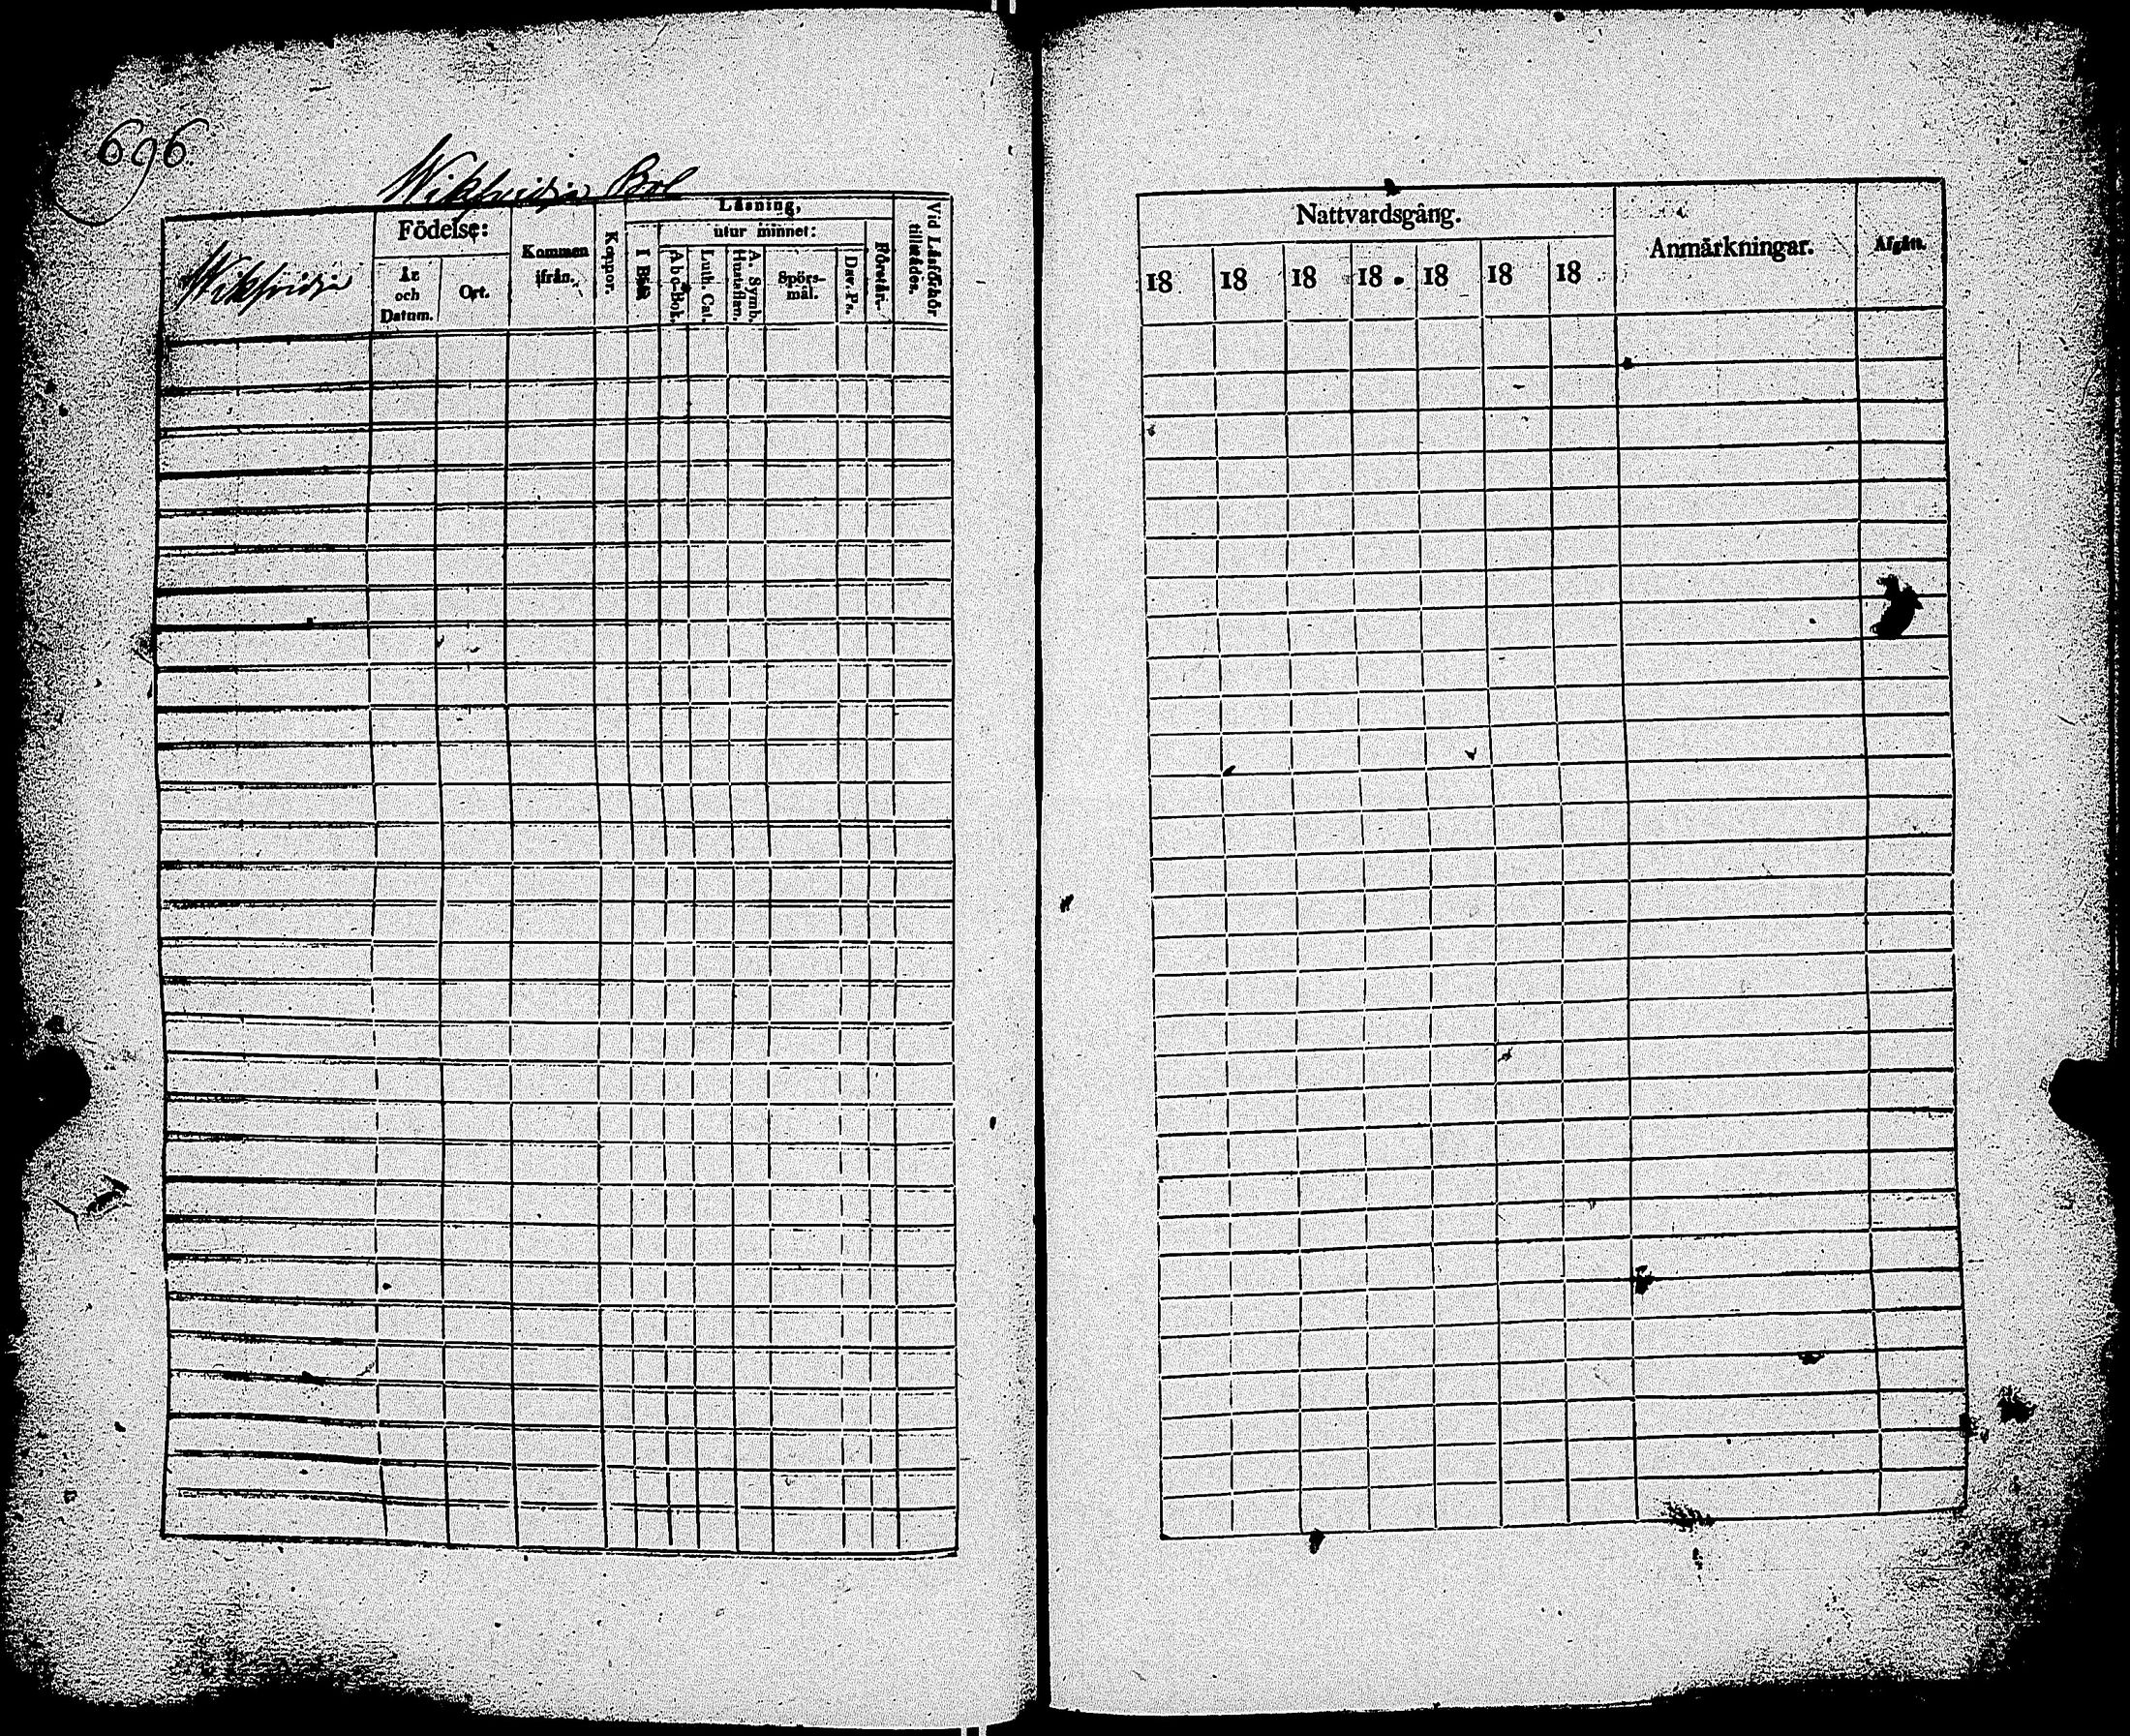 696
Bol
Födelse:
År
och
Datum.
Ort.
Kommen
ifrån.
Koppor.
Läsning,
I Bok
utur minnet:
Ab-Bok.
Luth. Cat.
A. Symb.
Hustaflan.
Spörs-
mål.
Dav. Ps.
Förstår.
Vid Läsförhör
tillstädes.
Nattvardsgång.
18 18 18 18 18 18 18
Anmärkningar.
Afgått.